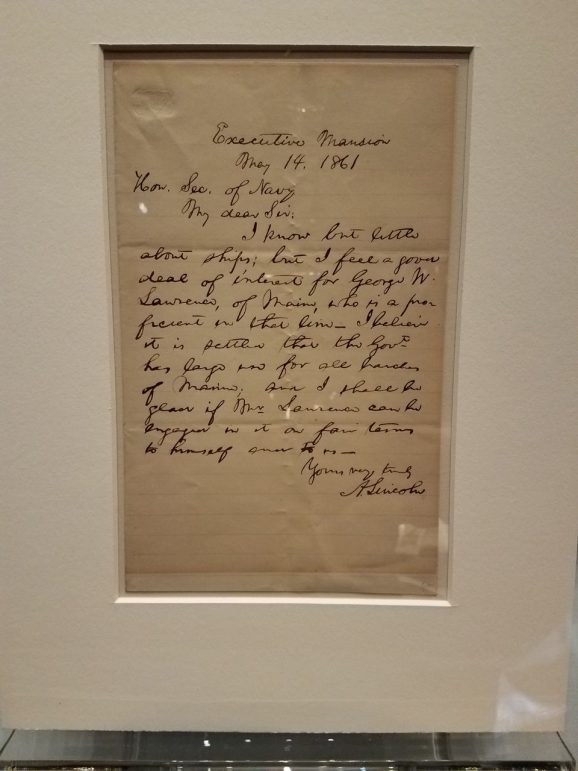 Executive Mansion
May 14. 1861
Hon. Sec. of Navy
My dear Sir:
I know but little
about ships; but I feel a good
deal of interest for George W.
Lawrence, of Maine, who is a pro-
ficient in that line— I believe
it is settled that the Gov't
has large use for all
of Maine; and I shall be
glad if Mr. Lawrence can be
engaged in it on fair terms
to himself and to us—
Yours very truly
A. Lincoln